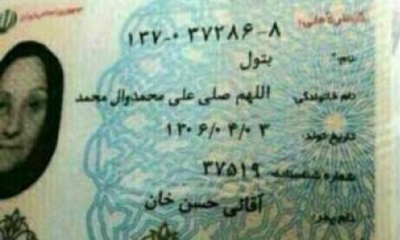 ۱۳۷-۰۳۷۲۸۶-۸
نام: بتول
نام خانوادگی: اللهم صلی علی محمدوال محمد
تاریخ تولد: ۱۳۰۶/۰۴/۰۳
شماره شناسنامه: ۳۷۵۱۹
نام پدر: آقائی حسن خان